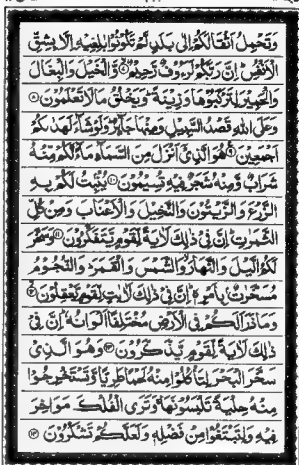 وَتَحْمِلُ اَثْقَالَكُمْ اِلٰى بَلَدٍ لَّمْ تَكُوْنُوْا بٰلِغِيْهِ اِلَّا بِشِقِّ
الْاَنْفُسِ ؕ اِنَّ رَبَّكُمْ لَرَءُوْفٌ رَّحِيْمٌ ۙ﴿۷﴾ وَّالْخَيْلَ وَالْبِغَالَ
وَالْحَمِيْرَ لِتَرْكَبُوْهَا وَزِيْنَةً ؕ وَيَخْلُقُ مَا لَا تَعْلَمُوْنَ ﴿۸﴾
وَعَلَى اللّٰهِ قَصْدُ السَّبِيْلِ وَمِنْهَا جَآئِرٌ ؕ وَلَوْ شَآءَ لَهَدٰىكُمْ
اَجْمَعِيْنَ ﴿۹﴾ هُوَ الَّذِيْۤ اَنْزَلَ مِنَ السَّمَآءِ مَآءً لَّكُمْ مِّنْهُ
شَرَابٌ وَّمِنْهُ شَجَرٌ فِيْهِ تُسِيْمُوْنَ ﴿۱۰﴾ يُنْۢبِتُ لَكُمْ بِهِ
الزَّرْعَ وَالزَّيْتُوْنَ وَالنَّخِيْلَ وَالْاَعْنَابَ وَمِنْ كُلِّ
الثَّمَرٰتِ ؕ اِنَّ فِيْ ذٰلِكَ لَاٰيَةً لِّقَوْمٍ يَّتَفَكَّرُوْنَ ﴿۱۱﴾ وَسَخَّرَ
لَكُمُ الَّيْلَ وَالنَّهَارَ ۙ وَالشَّمْسَ وَالْقَمَرَ ؕ وَالنُّجُوْمُ
مُسَخَّرٰتٌۢ بِاَمْرِهٖ ؕ اِنَّ فِيْ ذٰلِكَ لَاٰيٰتٍ لِّقَوْمٍ يَّعْقِلُوْنَ ۙ﴿۱۲﴾
وَمَا ذَرَاَ لَكُمْ فِي الْاَرْضِ مُخْتَلِفًا اَلْوَانُهٗ ؕ اِنَّ فِيْ
ذٰلِكَ لَاٰيَةً لِّقَوْمٍ يَّذَّكَّرُوْنَ ﴿۱۳﴾ وَهُوَ الَّذِيْ
سَخَّرَ الْبَحْرَ لِتَاْكُلُوْا مِنْهُ لَحْمًا طَرِيًّا وَّتَسْتَخْرِجُوْا
مِنْهُ حِلْيَةً تَلْبَسُوْنَهَا ۚ وَتَرَى الْفُلْكَ مَوَاخِرَ
فِيْهِ وَلِتَبْتَغُوْا مِنْ فَضْلِهٖ وَلَعَلَّكُمْ تَشْكُرُوْنَ ﴿۱۴﴾